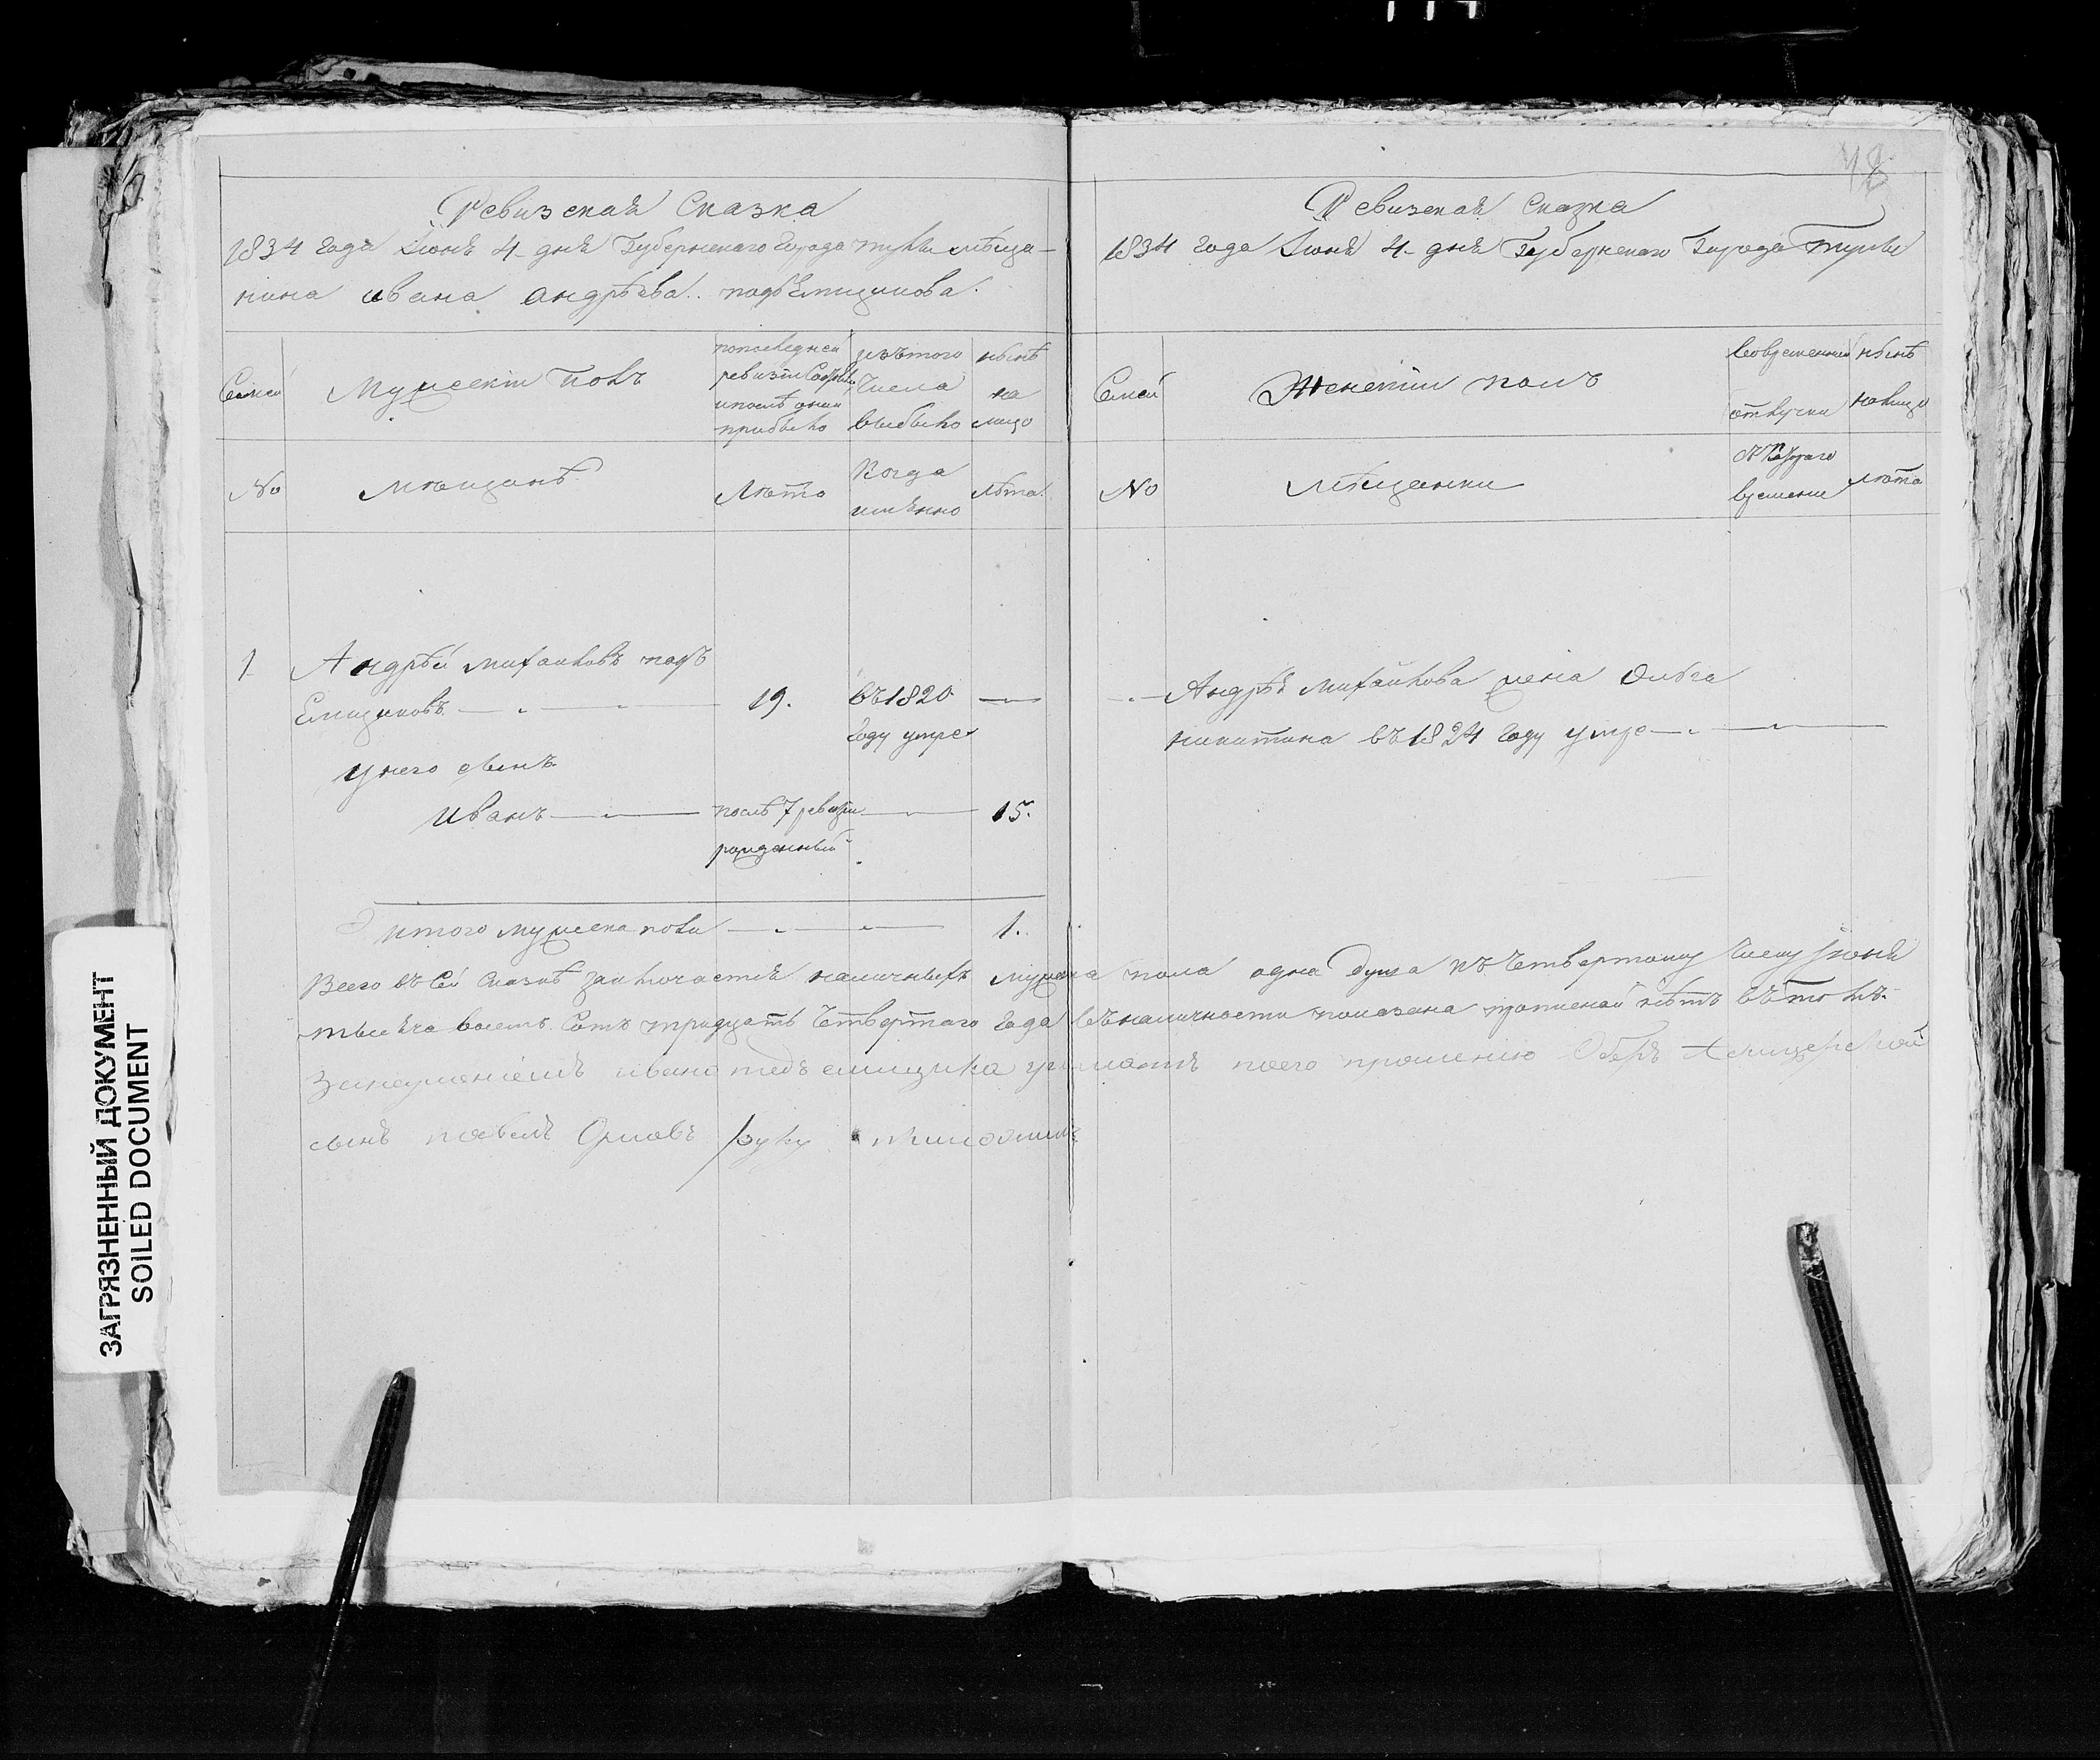 48
Ревизская Сказка
1834 Года Июня 4 дня Губернскаго Города тулы мѣща-
нина ивана андрѣева подъемщикова
Семей
Мужескій Полъ
по последней ревизіи состояло и послѣ оной прибыло
изъ того Числа выбыло
нынѣ на лицо
№
Мѣщанѣ
Лѣта
Когда имѣнно
лѣта
1
Андрѣй михайловъ подъ
Емщиковъ
19.
въ 1820
Году умре
у него сынъ
иванъ
послѣ 7 ревизіи
рожденный
15.
итого мужеска пола
1.
Ревизская Сказка
1834 Года Июня 4 дня Губернскаго Города Тулы
Семей
Женскій полъ
во временной отлучки
нынѣ на лицо
№
Мѣщанки
съ Котораго времени
лѣта
Андрѣя михайлова жена Ольга
никитина въ 1824 Году умре
Всего въ Сей Сказкѣ заключается наличныхъ мужеска пола одна Душа къ Четвертому Числу июня
тысяча восемь Сотъ тридцать Четвертаго Года въ наличности показана прописной нѣтъ въ томъ
ивана подъемщика по его прошенію Оберъ
сынъ павелъ Орловъ руку приложилъ
ЗАГРЯЗНЕННЫЙ ДОКУМЕНТ
SOILED DOCUMENT